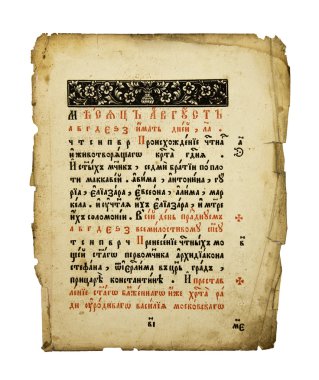 Мѣсяцъ Августъ
а в г д є ѕ з ймать днeй, ла.
ч т с н п в р Происхождéнїе чтна́
и҆ животворѧ́щаго крт҇а гдн҇ѧ.
И҆ ст҃ы́хъ мч҃нкъ, седмѝ бра́тїи по пло
ти маккавє́й. а҆ви́ма, а҆нтони́на, гу
рі́ѧ, є҆лїаза́ра, є҆ѵсе́ѡна, а҆ли́ма, мар
ке́ла. и҆ ᲂу҆чт҃лѧ и҆́хъ є҆лїаза́ра, и҆ мт҃ре
и҆́хъ соломоні́и. В се́й де́нь пра́днуемъ
а в г д є ѕ з всемлⷭ҇тивому сп҃су
т с н п в р ч Пренесе́нїе чтⷭ҇ны́хъ мо
ще́й ст҃а́гѡ первомч҃нка а҆рхидїа́кона
стефа́на, ѿ і҆ерⷭ҇ли́ма въ цр҃ь гра́дъ,
при цр҃ѣ константи́нѣ. И҆ преста́в
ленїе ст҃а́гѡ бл҃же́ннагѡ и҆́же хрⷭ҇та̀ ра
ди ᲂу҆ро́диваго васи́лїѧ моско́вскагѡ
а҃
в҃
в҃і